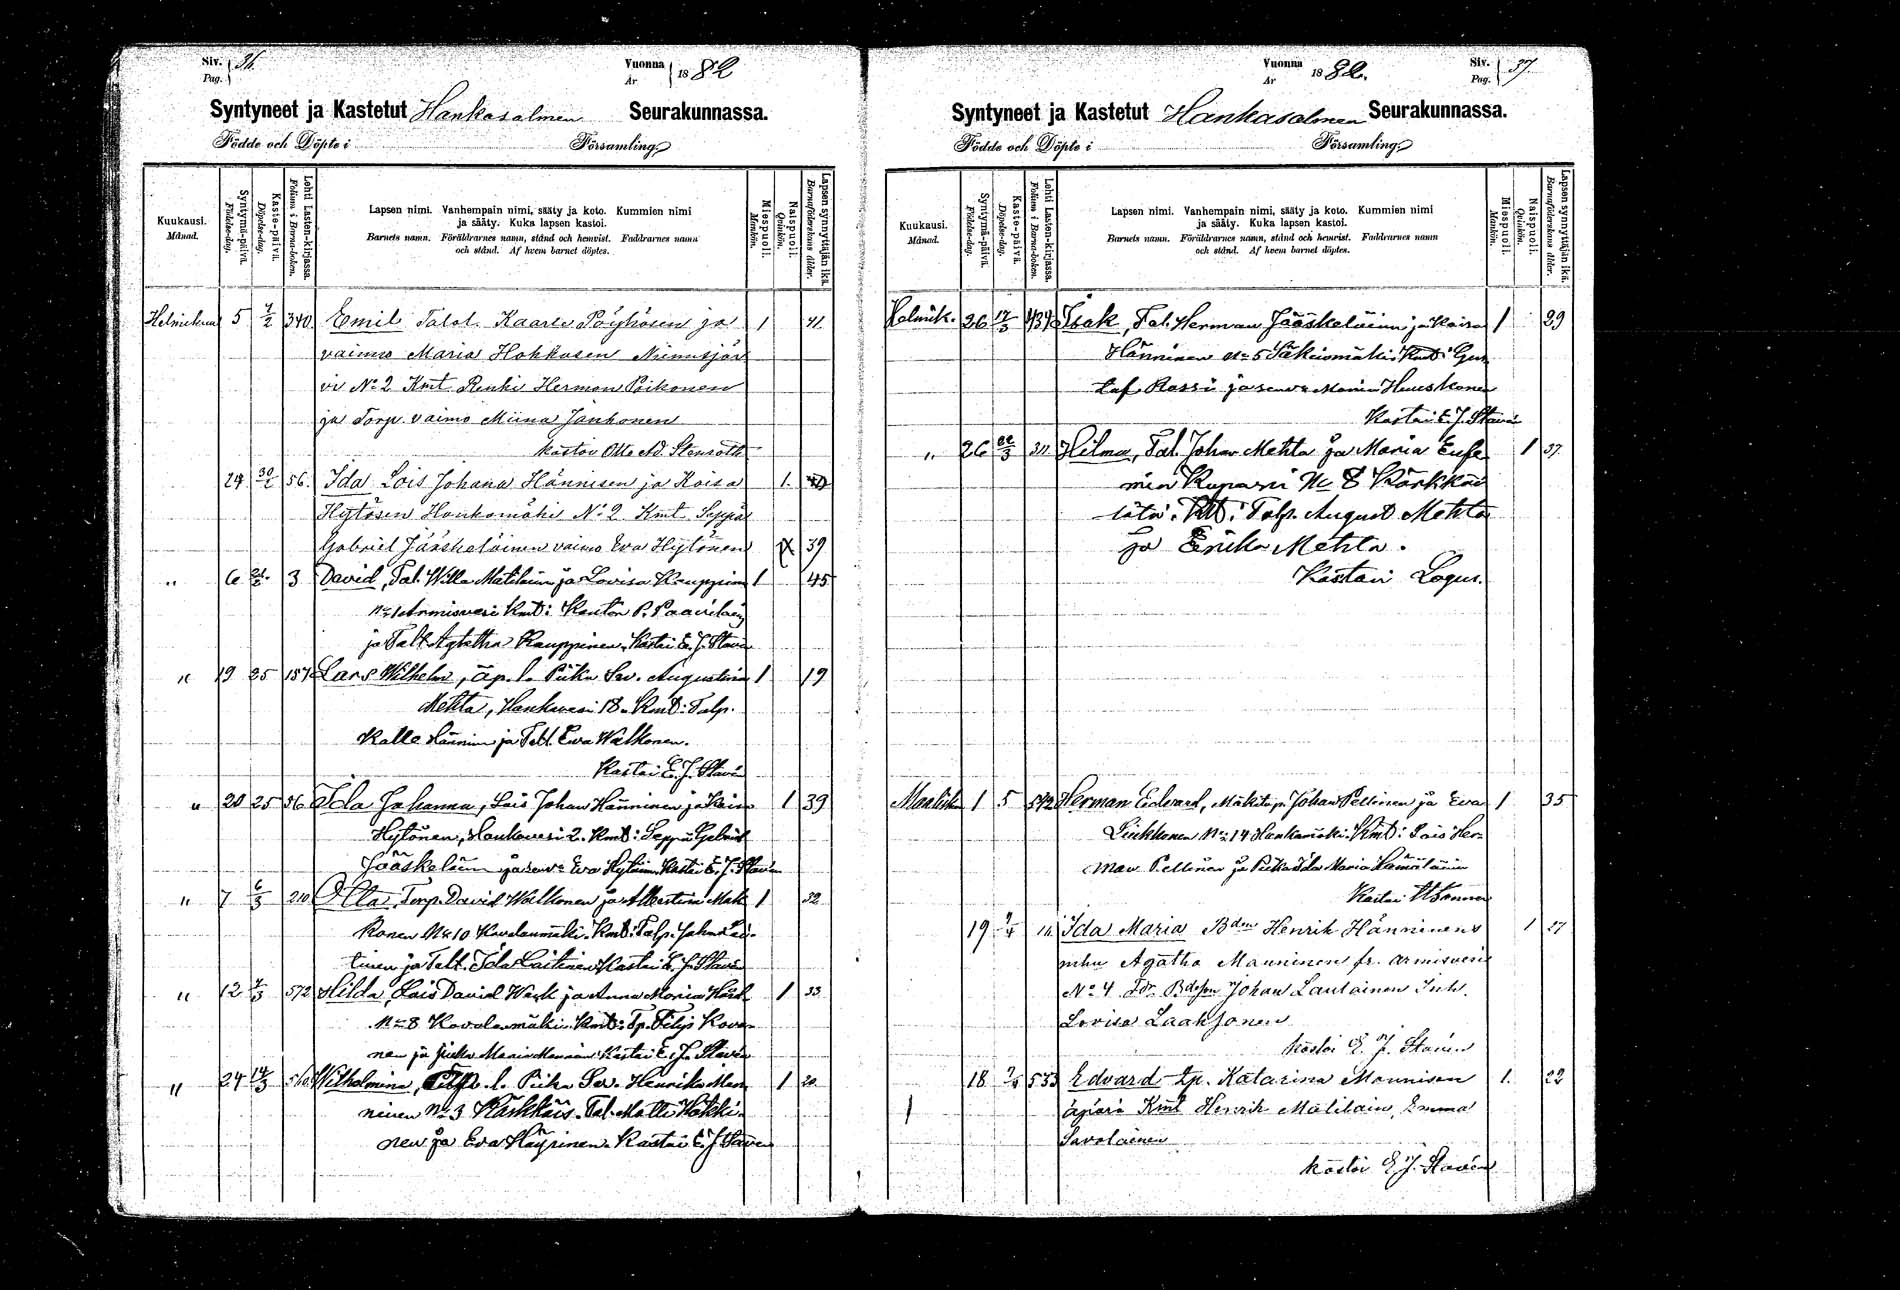 Siv. 36.
Pag.
Vuonna 1882
År
Syntyneet ja Kastetut Hankasalmen Seurakunnassa.
Födde och Döpte i Församling
Kuukausi. Månad.
Syntymä-päivä. Födelse-dag.
Kaste-päivä. Döpelse-dag.
Lehti Lasten-kirjassa. Folium i Barna-boken.
Lapsen nimi. Vanhempain nimi, sääty ja koto. Kummien nimi
ja sääty. Kuka lapsen kastoi.
Barnets namn. Föräldrarnes namn, stånd och hemvist. Faddrarnes namn
och stånd. Af hvem barnet döptes.
Miespuoli. Mankön.
Naispuoli. Qvinkön.
Lapsen synnyttäjän ikä. Barnaföderskans ålder.
Helmikuu 5 7/2 340. Emil Talol. Kaarle Pöyhösen ja 1 41.
vaimo Maria Hohkosen Niemisjär
vi No 2 Kmt Renki Herman Poikonen
ja Torp. vaimo Miina Janhonen
kastoi Otto Ad. Stenroth
24 56. Ida Lois Johana Hännisen ja Kaisa 1.
Hytösen Hankamäki No 2 Kmt Seppä
Gabriel Jääskeläinen vaimo Eva Hytönen 39
" 6 3 David, Tal. Wille Matilainen ja Lovisa Kauppinen 1 45
No 1 Armisvesi Kmt: P. Paavilainen
ja Agatha Kauppinen. Kastoi E. J. Stavén
" 19 25 157 Lars Wilhelm, äp. l. Piika Augustiina 1 19
Mehta, Hankavesi 18. Kmt: Talp.
Kalle Hänninen ja Talt. Eva Walkonen.
Kastoi E. J. Stavén
" 20 25 56 Ida Johanna, Lois Johan Hänninen ja Kaisa 1 39
Hytönen, Hankavesi 2. Kmt: Seppä Gabriel
Jääskeläinen ja Eva Hytönen. Kastoi E. J. Stavén
" 7 6/3 210 Otto, Torp. David Walkonen ja Albertina 1 32
No 10 Kovalanmäki. Kmt: Talp. Johan Lai-
tinen ja Talt. Ida Laitinen. Kastoi E. J. Stavén
" 12 572 Hilda, Lois David Wark ja Anna Maria 1 33
No 8 Kovalanmäki. Kmt: Tp. Filip Kova-
nen ja piika Maria Manninen. Kastoi E. J. Stavén
" 24 14/3 560. Wilhelmina, l. Piika Henrika Man 1 20.
ninen No 3 Kärkkäis. Tal. Matti Häkki-
nen ja Eva Häyrinen. Kastoi E. J. Stavén
Siv. 37.
Pag.
Vuonna 1882.
År
Syntyneet ja Kastetut Hankasalmen Seurakunnassa.
Födde och Döpte i Församling
Kuukausi. Månad.
Syntymä-päivä. Födelse-dag.
Kaste-päivä. Döpelse-dag.
Lehti Lasten-kirjassa. Folium i Barna-boken.
Lapsen nimi. Vanhempain nimi, sääty ja koto. Kummien nimi
ja sääty. Kuka lapsen kastoi.
Barnets namn. Föräldrarnes namn, stånd och hemvist. Faddrarnes namn
och stånd. Af hvem barnet döptes.
Miespuoli. Mankön.
Naispuoli. Qvinkön.
Lapsen synnyttäjän ikä. Barnaföderskans ålder.
Helmik. 26 434 Isak, Tal. Herman Jääskeläinen ja Kaisa 1 29
Hänninen No 5 Säkinmäki. Kmt: Gus
taf Rossi ja Maria Huuskonen
Kastoi E. J. Stavén
" 26 22/3 311 Hilma, Tal. Johan Mehta ja Maria Eufe 1 37.
mia Kuparii No 8 Kärkkäis
Kmt: Talp. August Mehta
ja Erika Mehta.
Kastoi Logus.
Maalisk. 1 5 542 Herman Edvard, Mäkitup. Johan Pellinen ja Eva 1 35
Linkkonen No 14 Hankamäki. Kmt: Lois Her-
man Pellinen ja Piika Ida Maria Hämäläinen
Kastoi
19 11. Ida Maria Bden Henrik Hänninens 1 27
mhu Agatha Manninen fr. Armisvesi
No 4 Fdr. Bdeson Johan Lautainen Inh.
Lovisa Laaksonen
kastoi E. J. Stavén
18 533 Edvard tp. Katarina Mannisen 1. 22
äpärä Kmt Henrik Matilain, Emma
Savolainen
kastoi E J. Stavén